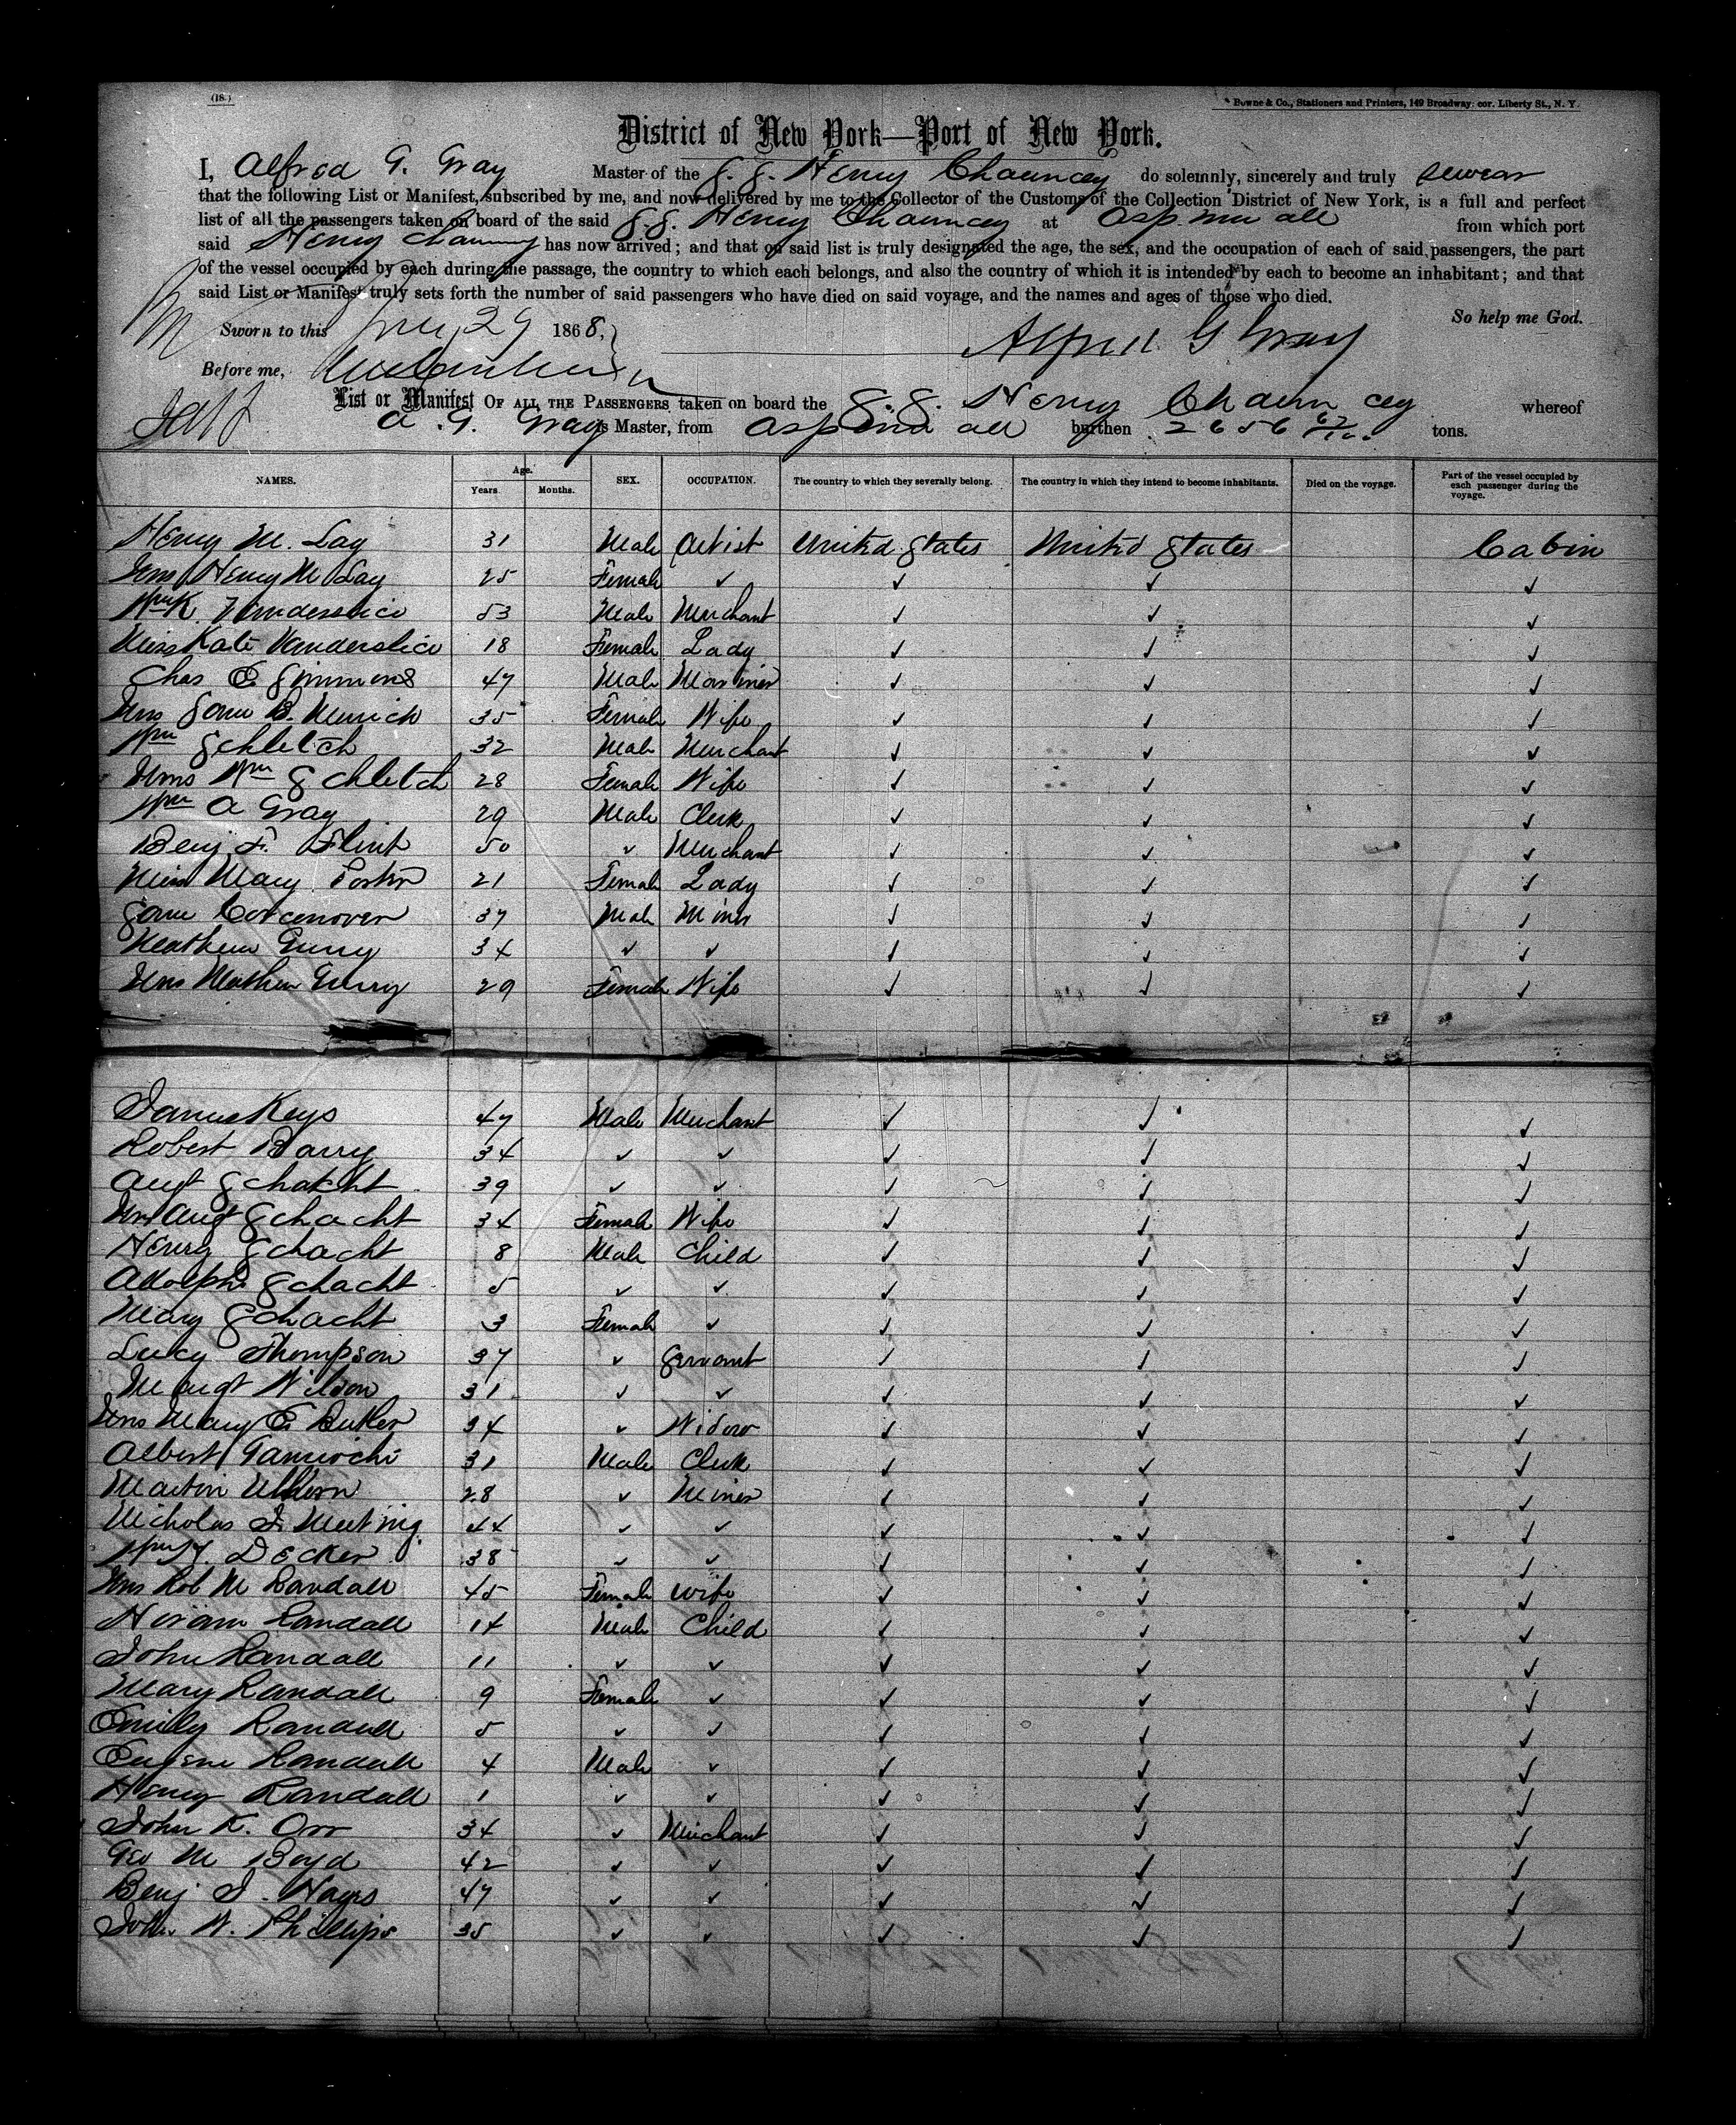 (18.)
Bowne & Co., Stationers and Printers, 149 Broadway, cor. Liberty St., N. Y.
District of New York—Port of New York.
I, Alfred G. Gray Master of the S. S. Henry Chauncey do solemnly, sincerely and truly swear
that the following List or Manifest, subscribed by me, and now delivered by me to the Collector of the Customs of the Collection District of New York, is a full and perfect
list of all the passengers taken on board of the said S. S. Henry Chauncey at Aspinwall from which port
said Henry Chauncey has now arrived; and that on said list is truly designated the age, the sex, and the occupation of each of said passengers, the part
of the vessel occupied by each during the passage, the country to which each belongs, and also the country of which it is intended by each to become an inhabitant; and that
said List or Manifest truly sets forth the number of said passengers who have died on said voyage, and the names and ages of those who died.
So help me God.
Sworn to this 29 1868,
Alfred G Gray
Before me,
List or Manifest OF ALL THE PASSENGERS taken on board the S. S. Henry Chauncey whereof
A. G. Gray is Master, from Aspinwall burthen 2656 62/100 tons.
NAMES. Age. Years. Months. SEX. OCCUPATION. The country to which they severally belong. The country in which they intend to become inhabitants. Died on the voyage. Part of the vessel occupied by each passenger during the voyage.
Henry M. Lay 31 Male Artist United States United States Cabin
Mrs Henry M Lay 25 Female ✓ ✓ ✓ ✓
Wm K. Vanderslice 53 Male Merchant ✓ ✓ ✓
Miss Kate Vanderslice 18 Female Lady ✓ ✓ ✓
Chas E Simmons 47 Male Mariner ✓ ✓ ✓
Mrs Saml B. 35 Female Wife ✓ ✓ ✓
Wm Schletch 32 Male Merchant ✓ ✓ ✓
Mrs Wm Schletch 28 Female Wife ✓ ✓ ✓
Wm A Gray 29 Male Clerk ✓ ✓ ✓
Benj F. Flint 50 ✓ Merchant ✓ ✓ ✓
Miss Mary Porter 21 Female Lady ✓ ✓ ✓
Saml 37 Male Miner ✓ ✓ ✓
Mathew 34 ✓ ✓ ✓ ✓ ✓
Mrs Mathew 29 Female Wife ✓ ✓ ✓
James Keys 47 Male Merchant ✓ ✓ ✓
Robert Barry 34 ✓ ✓ ✓ ✓ ✓
Augt Schacht 39 ✓ ✓ ✓ ✓ ✓
Mrs Augt Schacht 34 Female Wife ✓ ✓ ✓
Henry Schacht 8 Male Child ✓ ✓ ✓
Adolph Schacht 5 ✓ ✓ ✓ ✓ ✓
Mary Schacht 3 Female ✓ ✓ ✓ ✓
Lucy Thompson 37 ✓ Servant ✓ ✓ ✓
Margt Wilson 31 ✓ ✓ ✓ ✓ ✓
Mrs Mary E Butler 34 ✓ Widow ✓ ✓ ✓
Albert 31 Male Clerk ✓ ✓ ✓
Martin 28 ✓ Miner ✓ ✓ ✓
Nicholas J. 44 ✓ ✓ ✓ ✓ ✓
Wm Decker 38 ✓ ✓ ✓ ✓ ✓
Mrs Rob M Randall 45 Female Wife ✓ ✓ ✓
Hiram Randall 14 Male Child ✓ ✓ ✓
John Randall 11 ✓ ✓ ✓ ✓ ✓
Mary Randall 9 Female ✓ ✓ ✓ ✓
Emily Randall 5 ✓ ✓ ✓ ✓ ✓
Eugene Randall 4 Male ✓ ✓ ✓ ✓
Henry Randall 1 ✓ ✓ ✓ ✓ ✓
John K. Orr 34 ✓ Merchant ✓ ✓ ✓
Geo M Boyd 42 ✓ ✓ ✓ ✓ ✓
Benj J. Hayes 47 ✓ ✓ ✓ ✓ ✓
John W. Phillips 35 ✓ ✓ ✓ ✓ ✓